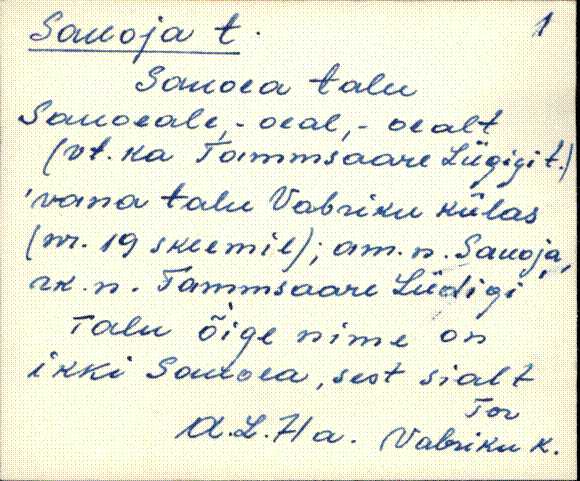 Sauoja t. 1
Sauoea talu
Sauoeale, -oeal, -oealt
(vt. ka Tammsaare Liigigi t.)
'vana talu Vabriku külas
(nr. 19 skeemil); am. n. Sauoja,
rk. n. Tammsaare Liidigi'
Talu õige nime on
ikki Sauoea, sest sialt
Tor
A.L. 71a. Vabriku k.